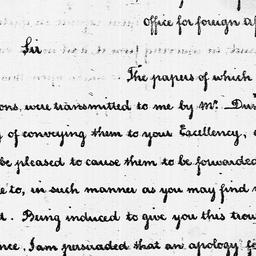 Office for foreign af
Sir
The papers of which
ons, were transmitted to me by Mr. Du
of conveying them to your Excellency,
be pleased to cause them to be forwarded
to, in such manner as you may find
d. Being induced to give you this trou
nce, I am persuaded that an apology fo